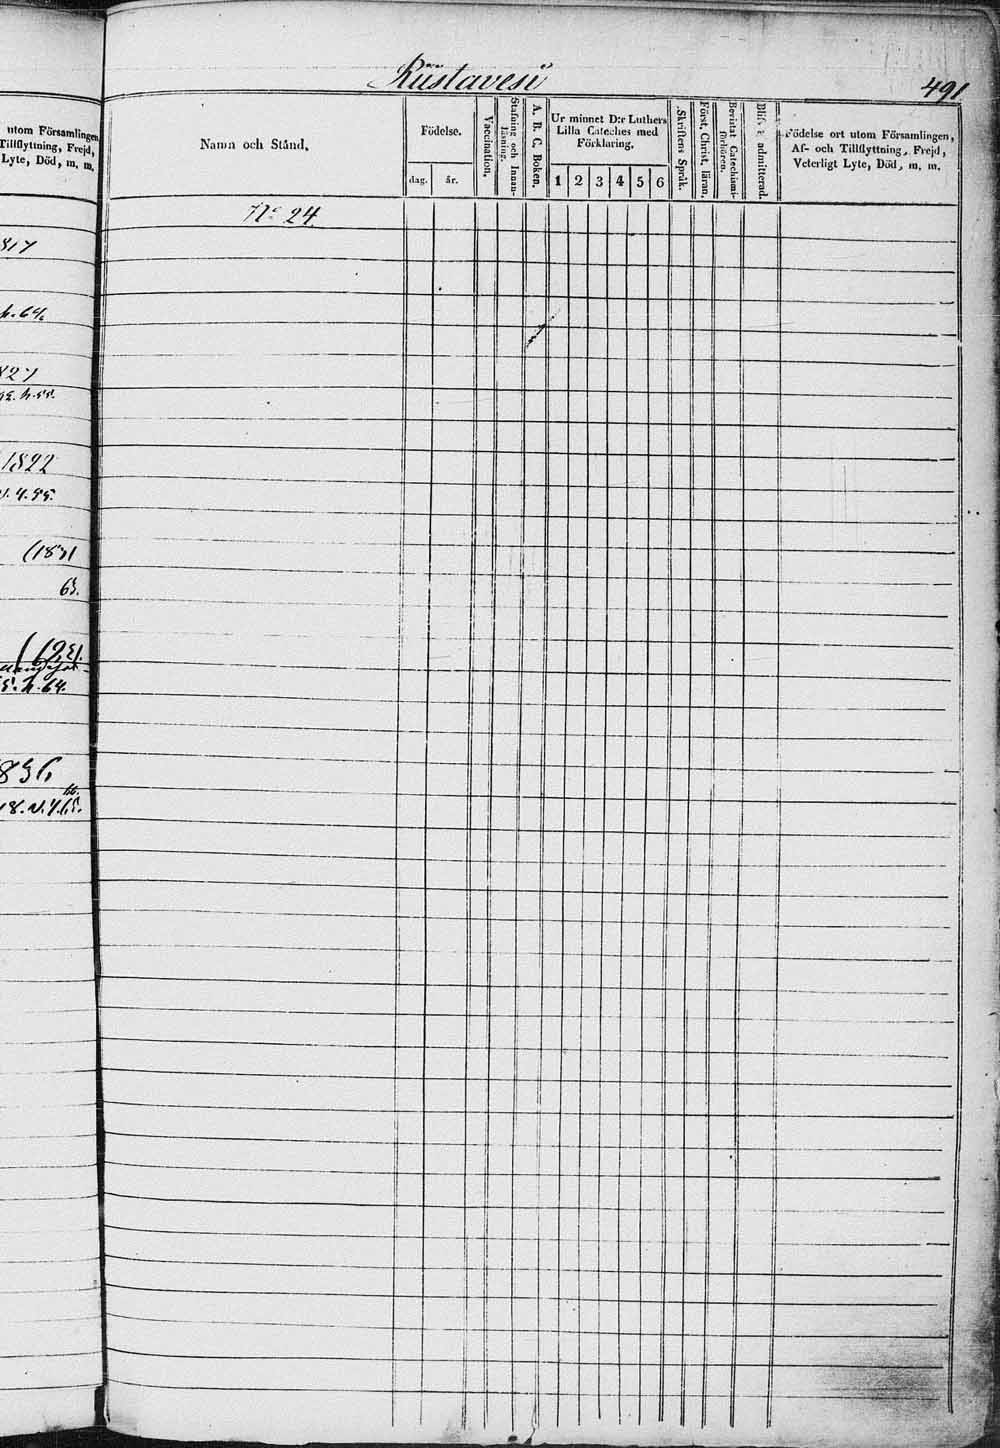 utom Församlingen,
Tillflyttning, Frejd,
Lyte, Död, m. m.
817
h. 64.
827
h. 55.
1822
v. 4. 55.
(1831
63.
h. 64.
836
18. v. 4. 65.
Rüstavesi
491
Namn och Stånd.
Födelse.
dag.
år.
Vaccination.
Stafning och Innan-
läsning.
A. B. C. Boken.
Ur minnet D:r Luthers
Lilla Cateches med
Förklaring.
1 2 3 4 5 6
Skriftens Språk.
Först. Christ. läran.
Bevistat Catechismi-
förhören.
admitterad.
Födelse ort utom Församlingen,
Af- och Tillflyttning, Frejd,
Veterligt Lyte, Död, m. m.
No 24.